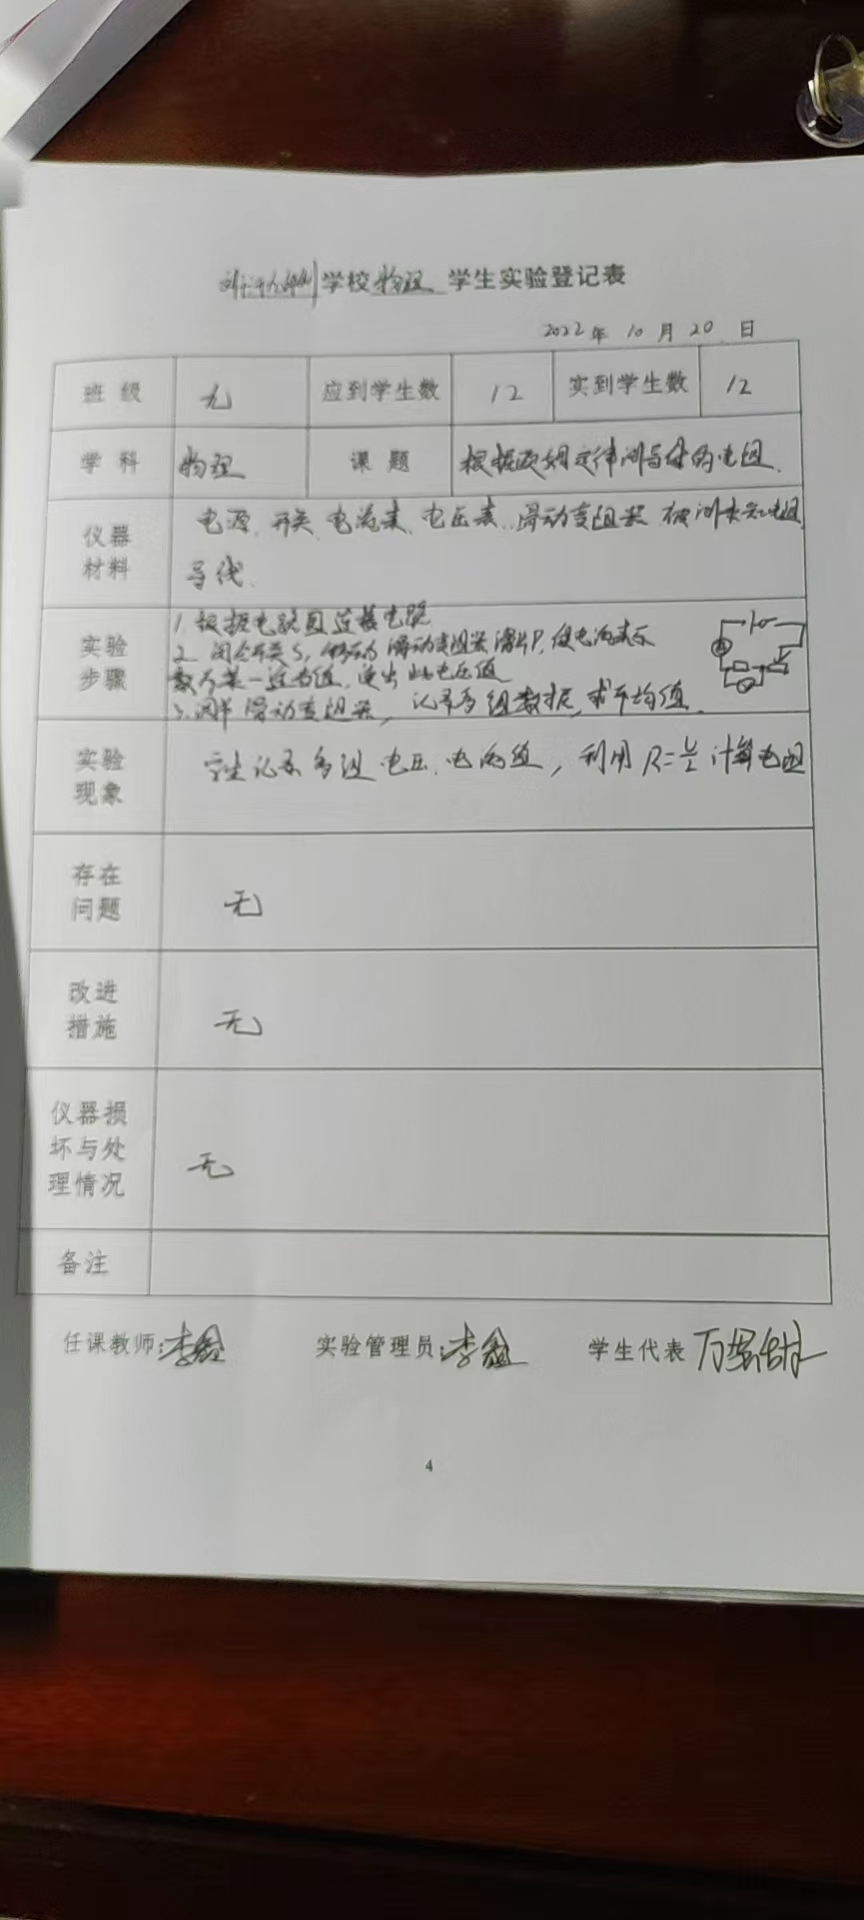 学校 物理 学生实验登记表
2022 年 10 月 20 日
班 级 九 应到学生数 12 实到学生数 12
学 科 物理 课 题 根据欧姆定律测导体的电阻.
仪器 材料 电源、开关、电流表、电压表、滑动变阻器 被测未知电阻
导线.
实验 步骤 1. 根据电路图连接电路
2. 闭合开关S, 移动滑动变阻器滑片P, 使电流表示
数为某一适当值, 读出此电压值
3. 调节滑动变阻器, 记录多组数据, 求平均值.
实验 现象 学生记录多组电压、电流值, 利用R=U/I计算电阻
存在 问题 无
改进 措施 无
仪器损 坏与处 理情况 无
备注
任课教师: 李鑫 实验管理员: 李鑫 学生代表
4